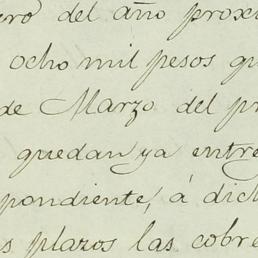 ero del año proxi
ocho mil pesos qu
de Marzo del pr
quedan ya entre
pondiente, á dich
s plazos las cobre